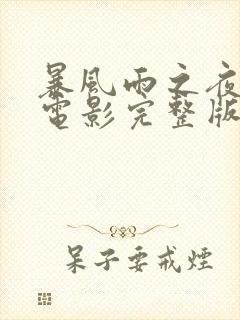 暴風雨之夜
電影完整版
呆子要戒煙